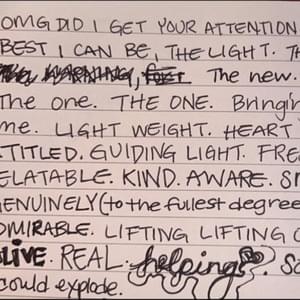 OMG DID I GET YOUR ATTENTION
BEST I CAN BE, THE LIGHT. TH
The new.
The one. THE ONE. Bringin
me. LIGHT WEIGHT. HEART
TITLED. GUIDING LIGHT. FRE
ELATABLE. KIND. AWARE. SM
GENUINELY (to the fullest degree
DMIRABLE. LIFTING LIFTING
ALIVE. REAL. helping. SO
could explode.